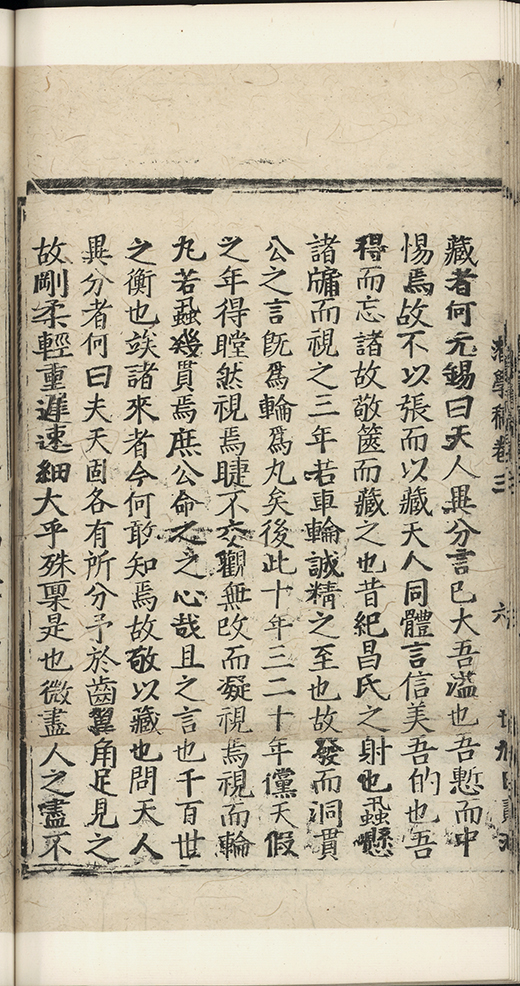 潛學稿卷三
六
藏者何元錫曰天人異分言已大吾溢也吾慙而中
惕焉故不以張而以藏天人同體言信美吾的也吾
得而忘諸故敬篋而藏之也昔紀昌氏之射也蝨懸
諸牖而視之三年若車輪誠精之至也故發而洞貫
公之言旣爲輪爲丸矣後此十年三二十年儻天假
之年得瞠然視焉睫不交觀無改而凝視焉視而輪
丸若蝨幾貫焉庶公命之之心哉且之言也千百世
之衡也竢諸來者今何敢知焉故敬以藏也問天人
異分者何曰夫天固各有所分予於齒翼角足見之
故剛柔輕重遲速細大乎殊稟是也微盡人之盡不